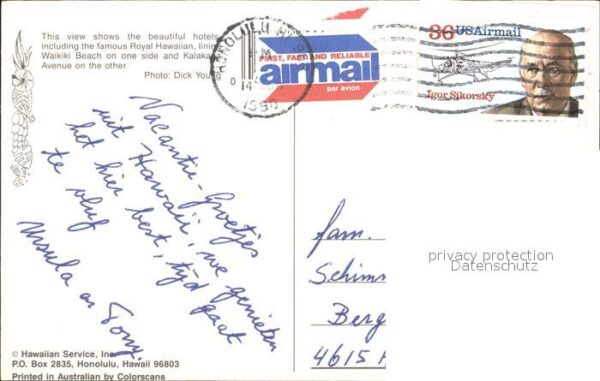 This view shows the beautiful hotels
including the famous Royal Hawaiian, lining
Waikiki Beach on one side and Kalakaua
Avenue on the other.
Photo: Dick Young
HONOLULU HI
PM
14
1990
FIRST, FAST AND RELIABLE
airmail
par avion
36 USAirmail
Igor Sikorsky
Vacantie-Groetjes
uit Hawaii, we genieten
het hier best, tijd gaat
te vlug
Ursula en Tony.
fam.
Schim
Berg
4615
privacy protection
Datenschutz
© Hawaiian Service, Inc.
P.O. Box 2835, Honolulu, Hawaii 96803
Printed in Australia by Colorscans